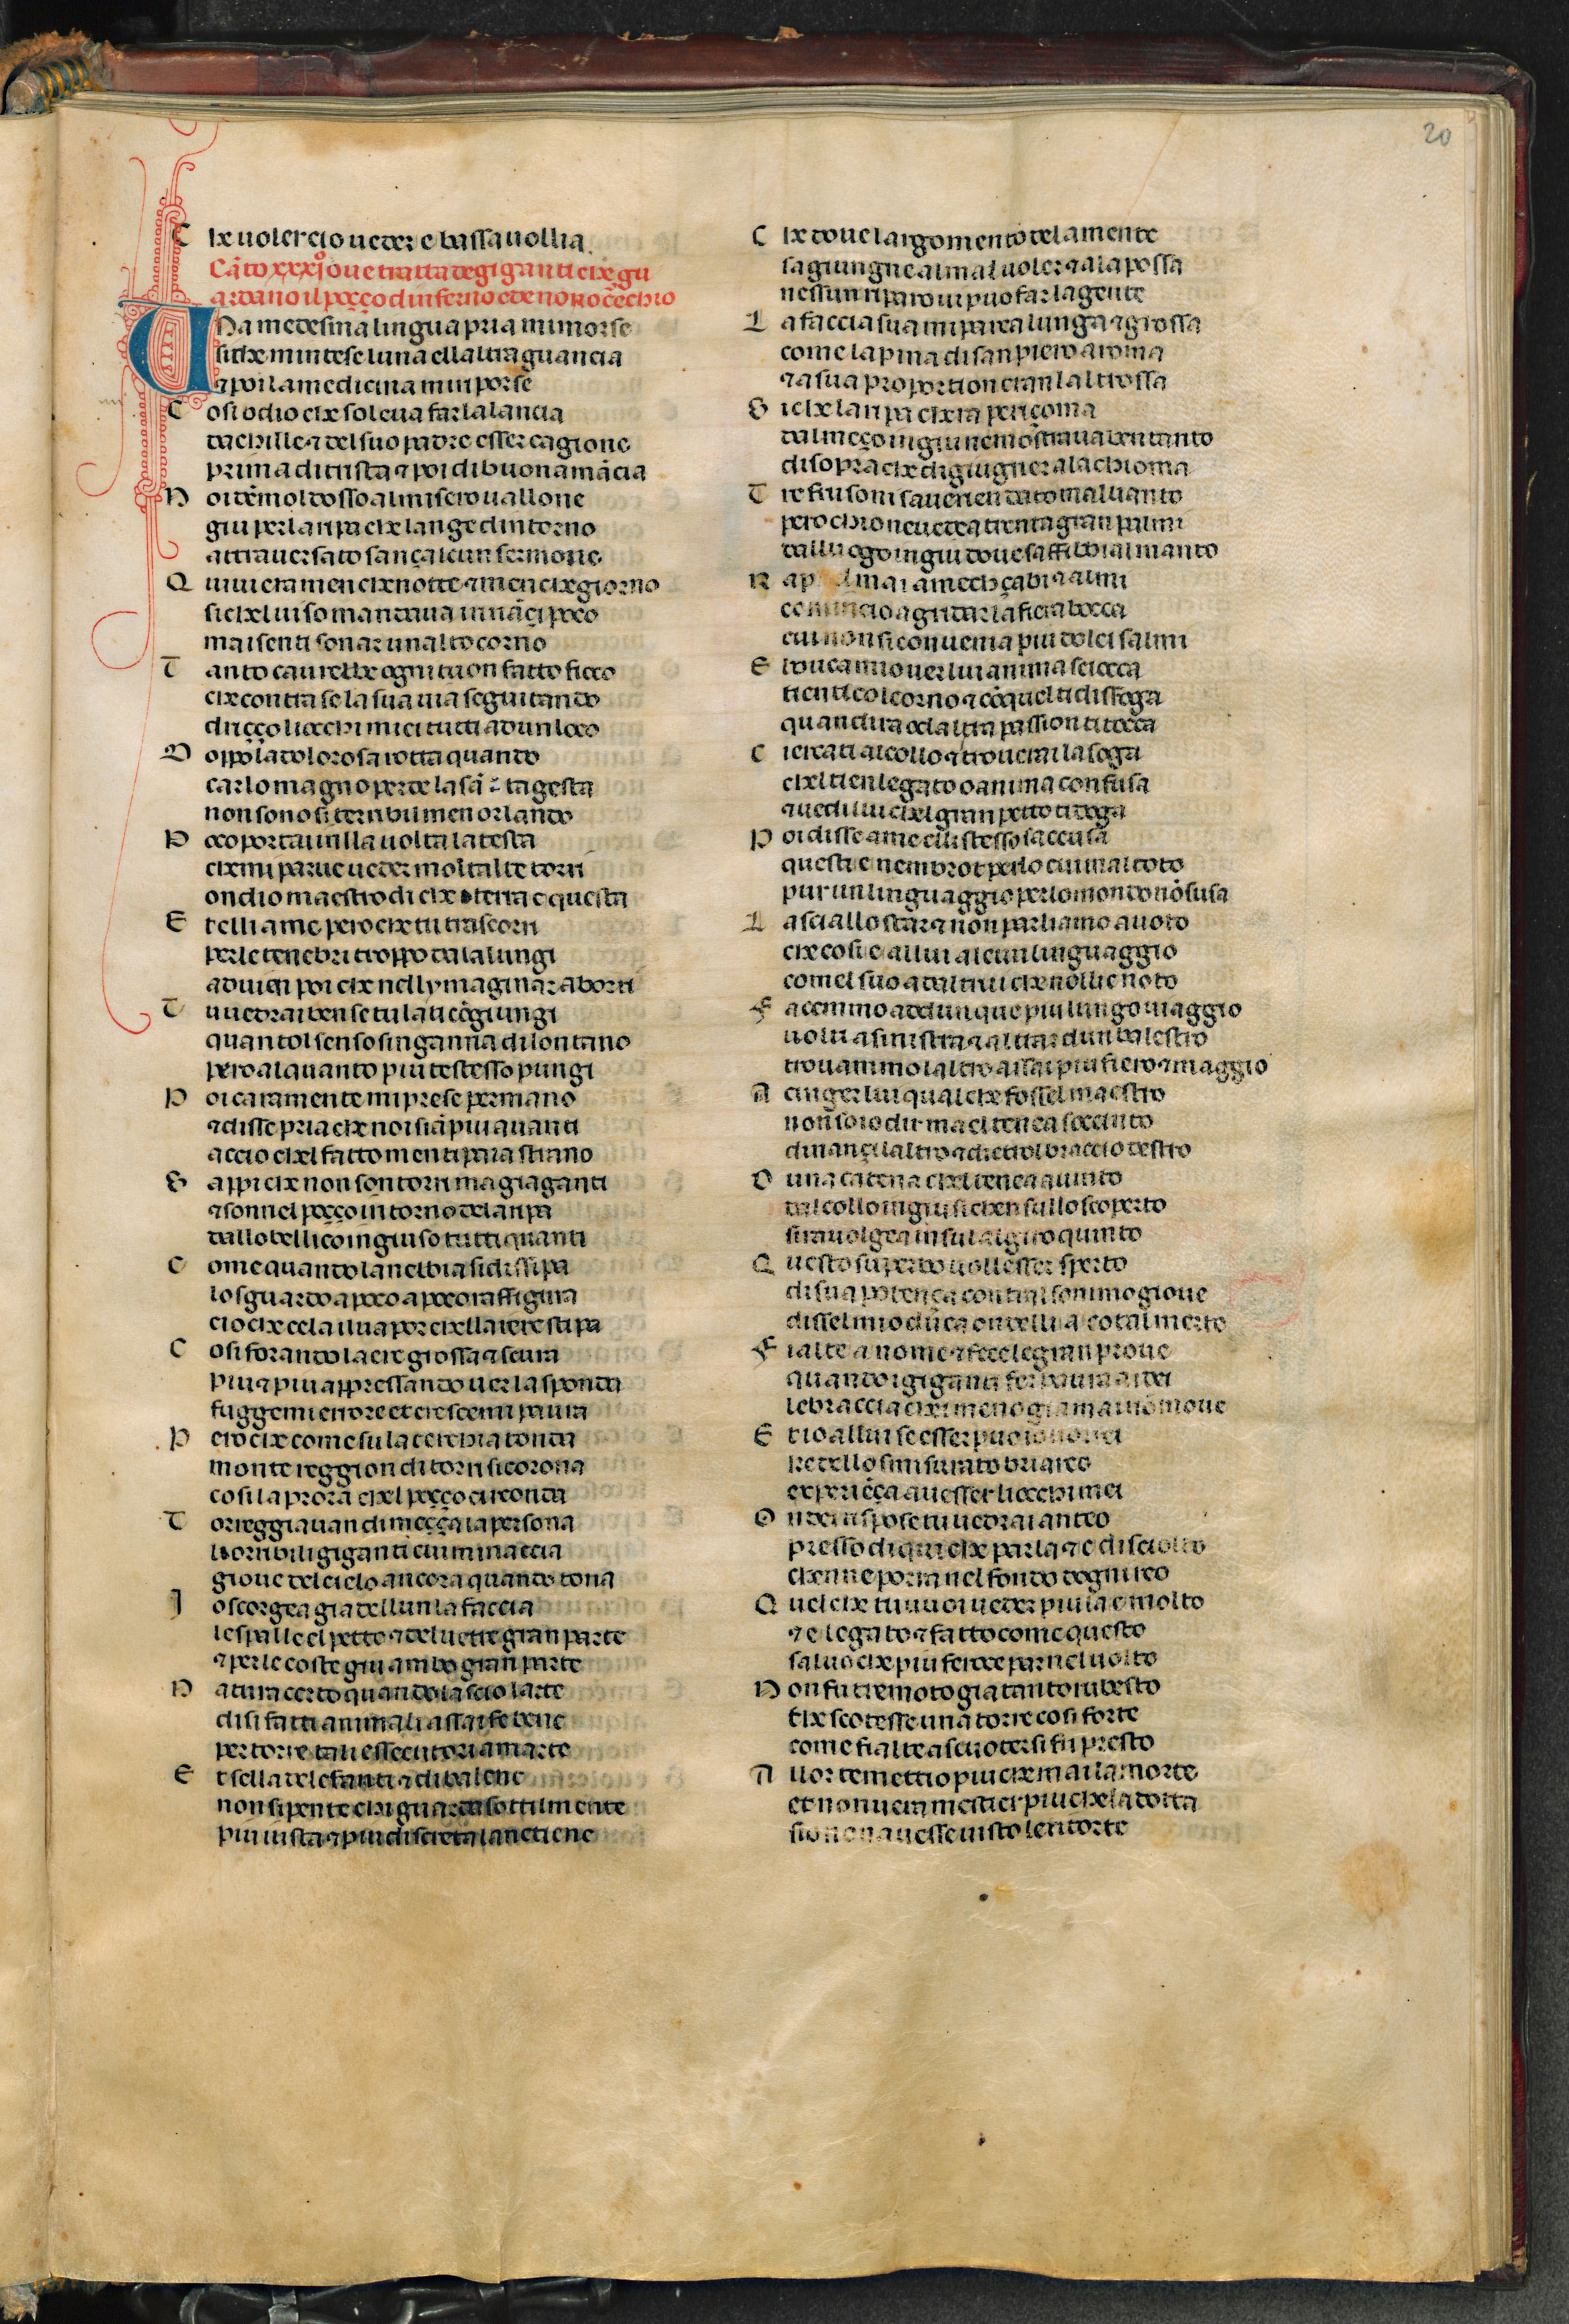 20
C he uoler cio uedere e bassa uollia
Cāto xxxj oue tratta de giganti che gu
ardano il poçço dinferno ed e nono cerchio
Vna medesma lingua pria mi morse
si che mi intese luna ellaltra guancia
⁊ poi la medicina mi riporse
C osi odio che soleua far la lancia
dachille ⁊ del suo padre esser cagione
prima di trista ⁊ poi di buona mācia
N oi dēmo l dosso al misero uallone
giu per la ripa che lange dintorno
attrauersato sança alcun sermone
Q uiui era men che notte ⁊ men che giorno
si chel uiso mandaua innāçi poco
ma i senti sonar un alto corno
T anto caurebbe ogni tuon fatto fioco
che contra se la sua uia seguitando
driçço li occhi miei tutti ad un loco
D oppo la dolorosa rotta quando
carlo magno perde la sāta gesta
non sono si terribilmen orlando
P oco portai in lla uolta la testa
che mi parue ueder molt alte torri
ondio maestro di che terra e questa
E t elli a me pero che tu trascorri
per le tenebri troppo da la lungi
aduien poi che nellymaginar aborri
T u uedrai ben se tu la ti cōgiungi
quanto l senso singanna di lontano
pero alquanto piu te stesso pungi
P oi caramente mi prese per mano
⁊ disse pria che noi siā piu auanti
accio chel fatto men ti para strano
S appi che non son torri ma giaganti
⁊ son nel poçço intorno de la ripa
dallo bellico in giuso tutti quanti
C ome quando la nebbia si dissipa
lo sguardo a poco a poco raffigura
cio che cela il uapor che llaiere stipa
C osi forando laere grossa ⁊ scura
piu ⁊ piu appressando uer la sponda
fuggemi errore et crescemi paura
P ero che come su la cerchia tonda
monte reggion di torri si corona
cosi la prora chel poçço circonda
T orreggiauan di meçça la persona
li orribili giganti cui minaccia
gioue del cielo ancora quando tona
I o scorgea gia dellun la faccia
le spalle el petto ⁊ del uentre gran parte
⁊ per le coste giu ambo gran parte
N atura certo quando lascio larte
di si fatti animali assai fe bene
per torre tali essecutori a marte
E t sella de lefanti ⁊ di balene
non si pente chi guarda sottilmente
piu iusta ⁊ piu discreta la ne tiene
C he doue largomento de la mente
sagiungne al mal uoler ⁊ a la possa
nessun riparo ui puo far la gente
L a faccia sua mi parea lunga ⁊ grossa
come la pina di san piero a roma
⁊ a sua proportion eran laltrossa
S i che la ripa chera periçoma
dal meço in giu ne mostraua ben tanto
di sopra che di giugner a la chioma
T re frison saverien dato mal uanto
pero chio ne uedea trenta gran palmi
dal luogo in giu doue saffibbia l manto
R ap mai amech çabi aalmi
comincio a gridar la fiera bocca
cui non si conuenia piu dolci salmi
E l duca mio uer lui anima sciocca
tienti col corno ⁊ cō quel ti disfoga
quandira od altra passion ti tocca
C ercati al collo ⁊ trouerai la soga
chel tien legato o anima confusa
⁊ uedi lui chel gran petto ti doga
P oi disse a me elli stesso saccusa
questi e nembrot per lo cui mal coto
pur un linguaggio per lo mondo nō susa
L asciallo star ⁊ non parliamo a uoto
che cosi e allui alcun linguaggio
comel suo ad altrui che nullie noto
F acemmo adunque piu lungo uiaggio
uolti a sinistra ⁊ al trar dun balestro
trouammo laltro assai piu fiero ⁊ maggio
A cinger lui qual che fossel maestro
non so io dir ma el tenea soccinto
dinançi laltro ⁊ dietro l braccio destro
D una catena chel tenea auinto
dal collo in giu si chen sullo scoperto
si rauolgea insul al giro quinto
Q uesto superbo uollesser sperto
di sua potença contral sommo gioue
dissel mio duca ondelli a cotal merto
F ialte a nome ⁊ fece le gran proue
quando i giganti fer paura ai dei
le braccia chei meno gia mai nō moue
E t io allui se esser puo io uorrei
che dello smisurato briareo
experiēça auesser li occhi miei
O nde rispose tu uedrai anteo
presso di qui che parla ⁊ e disciolto
che ne porra nel fondo dogni reo
Q uel che tu uuoi ueder piu la e molto
⁊ e legato ⁊ fatto come questo
saluo che piu feroce par nel uolto
N on fu tremoto gia tanto rubesto
che scotesse una torre cosi forte
come fialte a scuotersi fu presto
A llor temettio piu che mai la morte
et non uera mestier piu che la dotta
sio non auesse uisto le ritorte